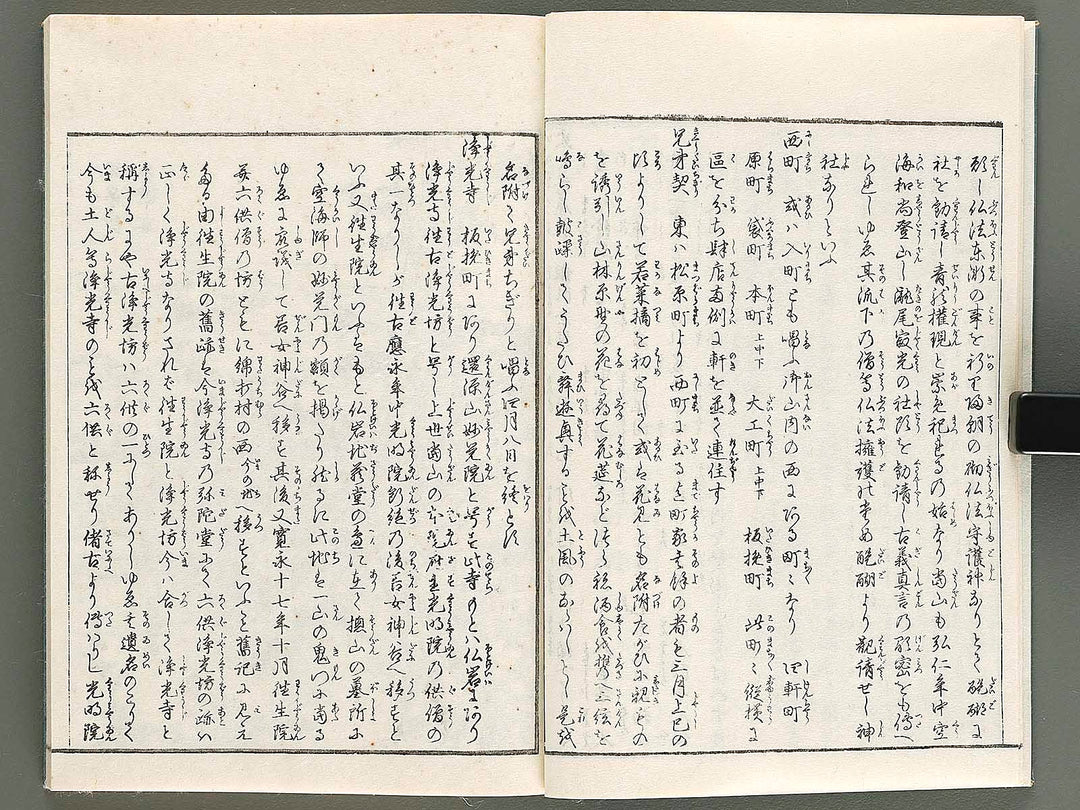 社を勧請し青龍権現と崇め祀るの始なり当山も弘仁年中空
海和尚登山し瀧尾寂光の社頭を勧請し古義真言の顕密をも傳へ
られしゆゑ其流下の僧等仏法擁護のため醍醐より勧請せし神
社ありといふ
西町 或ハ入町とも唱ふ御山内の西にある町々なり 四軒町
原町 袋町 本町上中下 大工町上中下 板挽町 此町々縦横に
區を分ち肆店両側に軒を並べ連住す
兄弟契 東ハ松原町より西町に至るまで町家其餘の者も三月上巳の
日よりして若菜摘を初として或は花見とも名附たがひに親しきもの
を誘引し山林原野の花を尋て花莚など設け酒食を携へ三絃を
鳴らし鼓踊してうたひ舞遊興することを土風のならハしとし是を
名附て兄弟ちぎりと唱ふ四月八日を終とす
浄光寺 板挽町にあり還源山妙覚院と号す此寺のもとハ仏岩にあり
浄光寺往古浄光坊と号し上世当山の本院座主光明院の供僧の
其一なりしが往古應永年中光明院断絶の後若女神谷へ移すと
いふ又往生院といへるも仏岩地蔵堂の邊に在て摠山の墓所に
て空海師の妙覚門の額を掲たり然るに此地は一山の鬼門に当る
ゆゑに衆議して若女神谷へ移す其後又寛永十七年十月往生院
并六供僧の坊とともに綿打村の西今の地へ移すといふこと舊記に見え
たる由往生院の舊跡は今浄光寺の弥陀堂にて六供浄光坊の跡ハ
正しく浄光寺なりされば往生院と浄光坊今ハ合して浄光寺と
稱するにや古浄光坊ハ六供の一にてありしゆゑ其遺名のこりて
今も土人等浄光寺のことを六供と称せり偖古より傳ハりし光明院